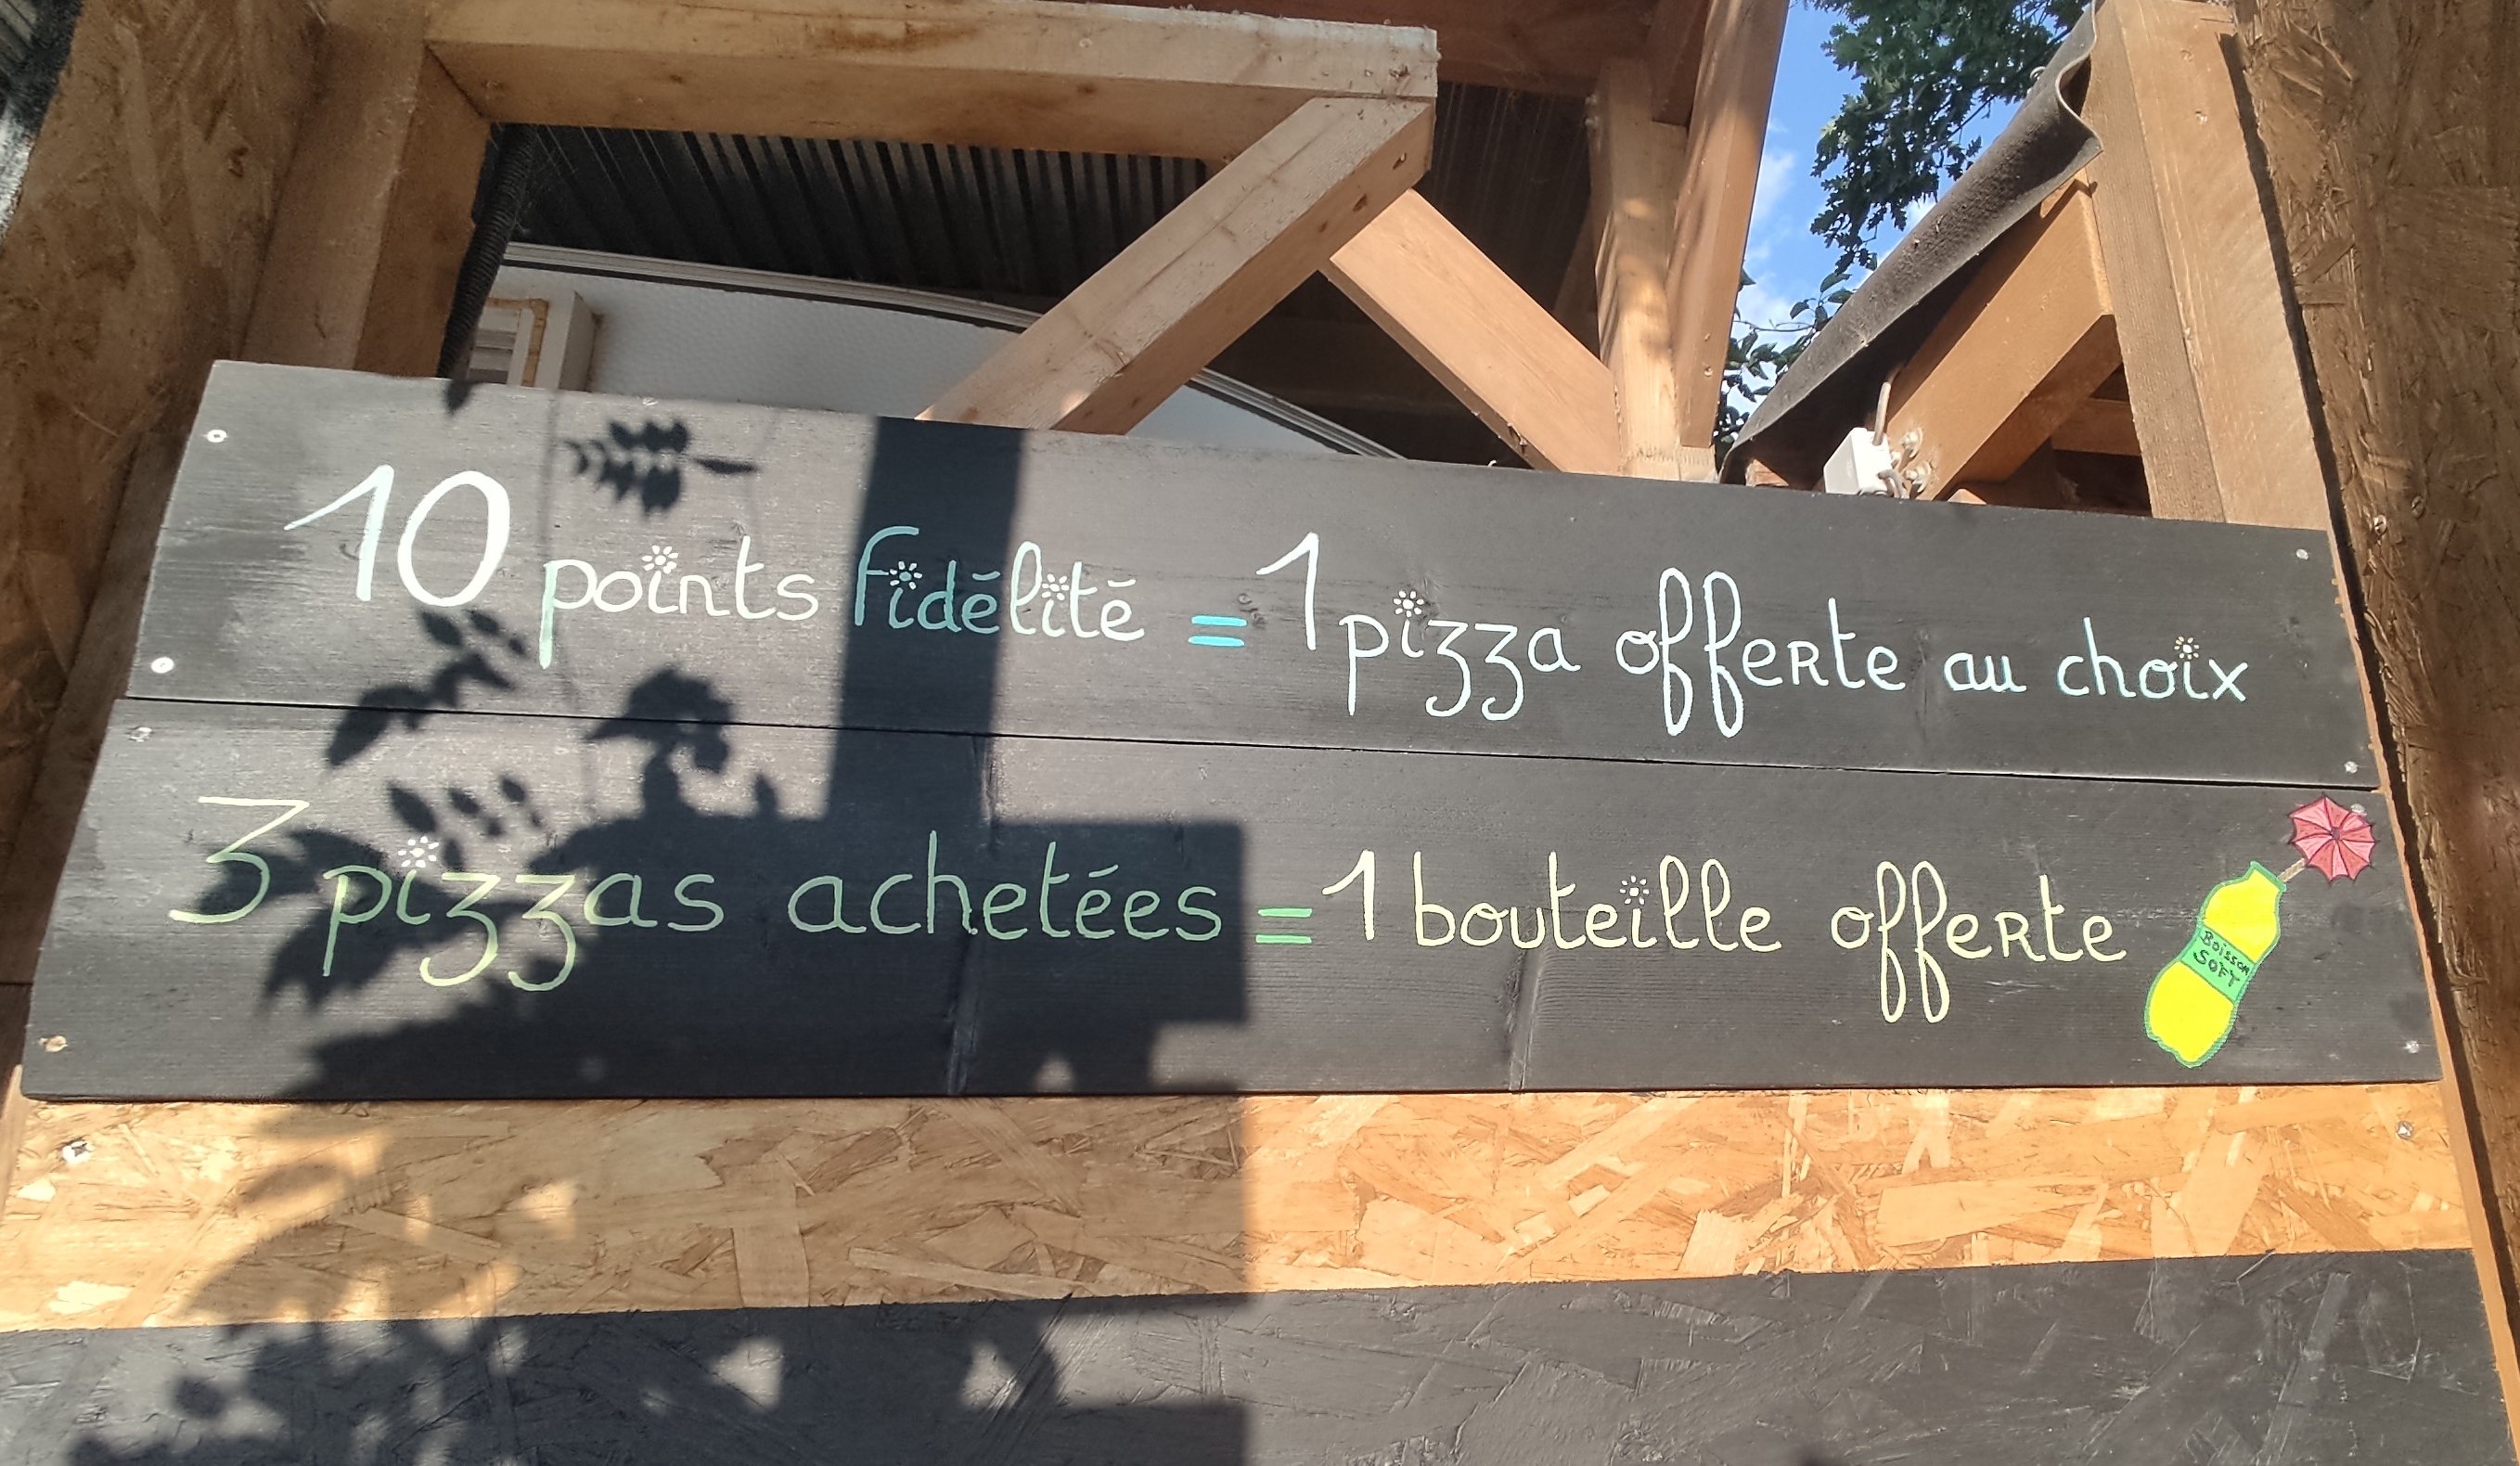 10 points fidélité = 1 pizza offerte au choix
3 pizzas achetées = 1 bouteille offerte
Boisson
SOFT